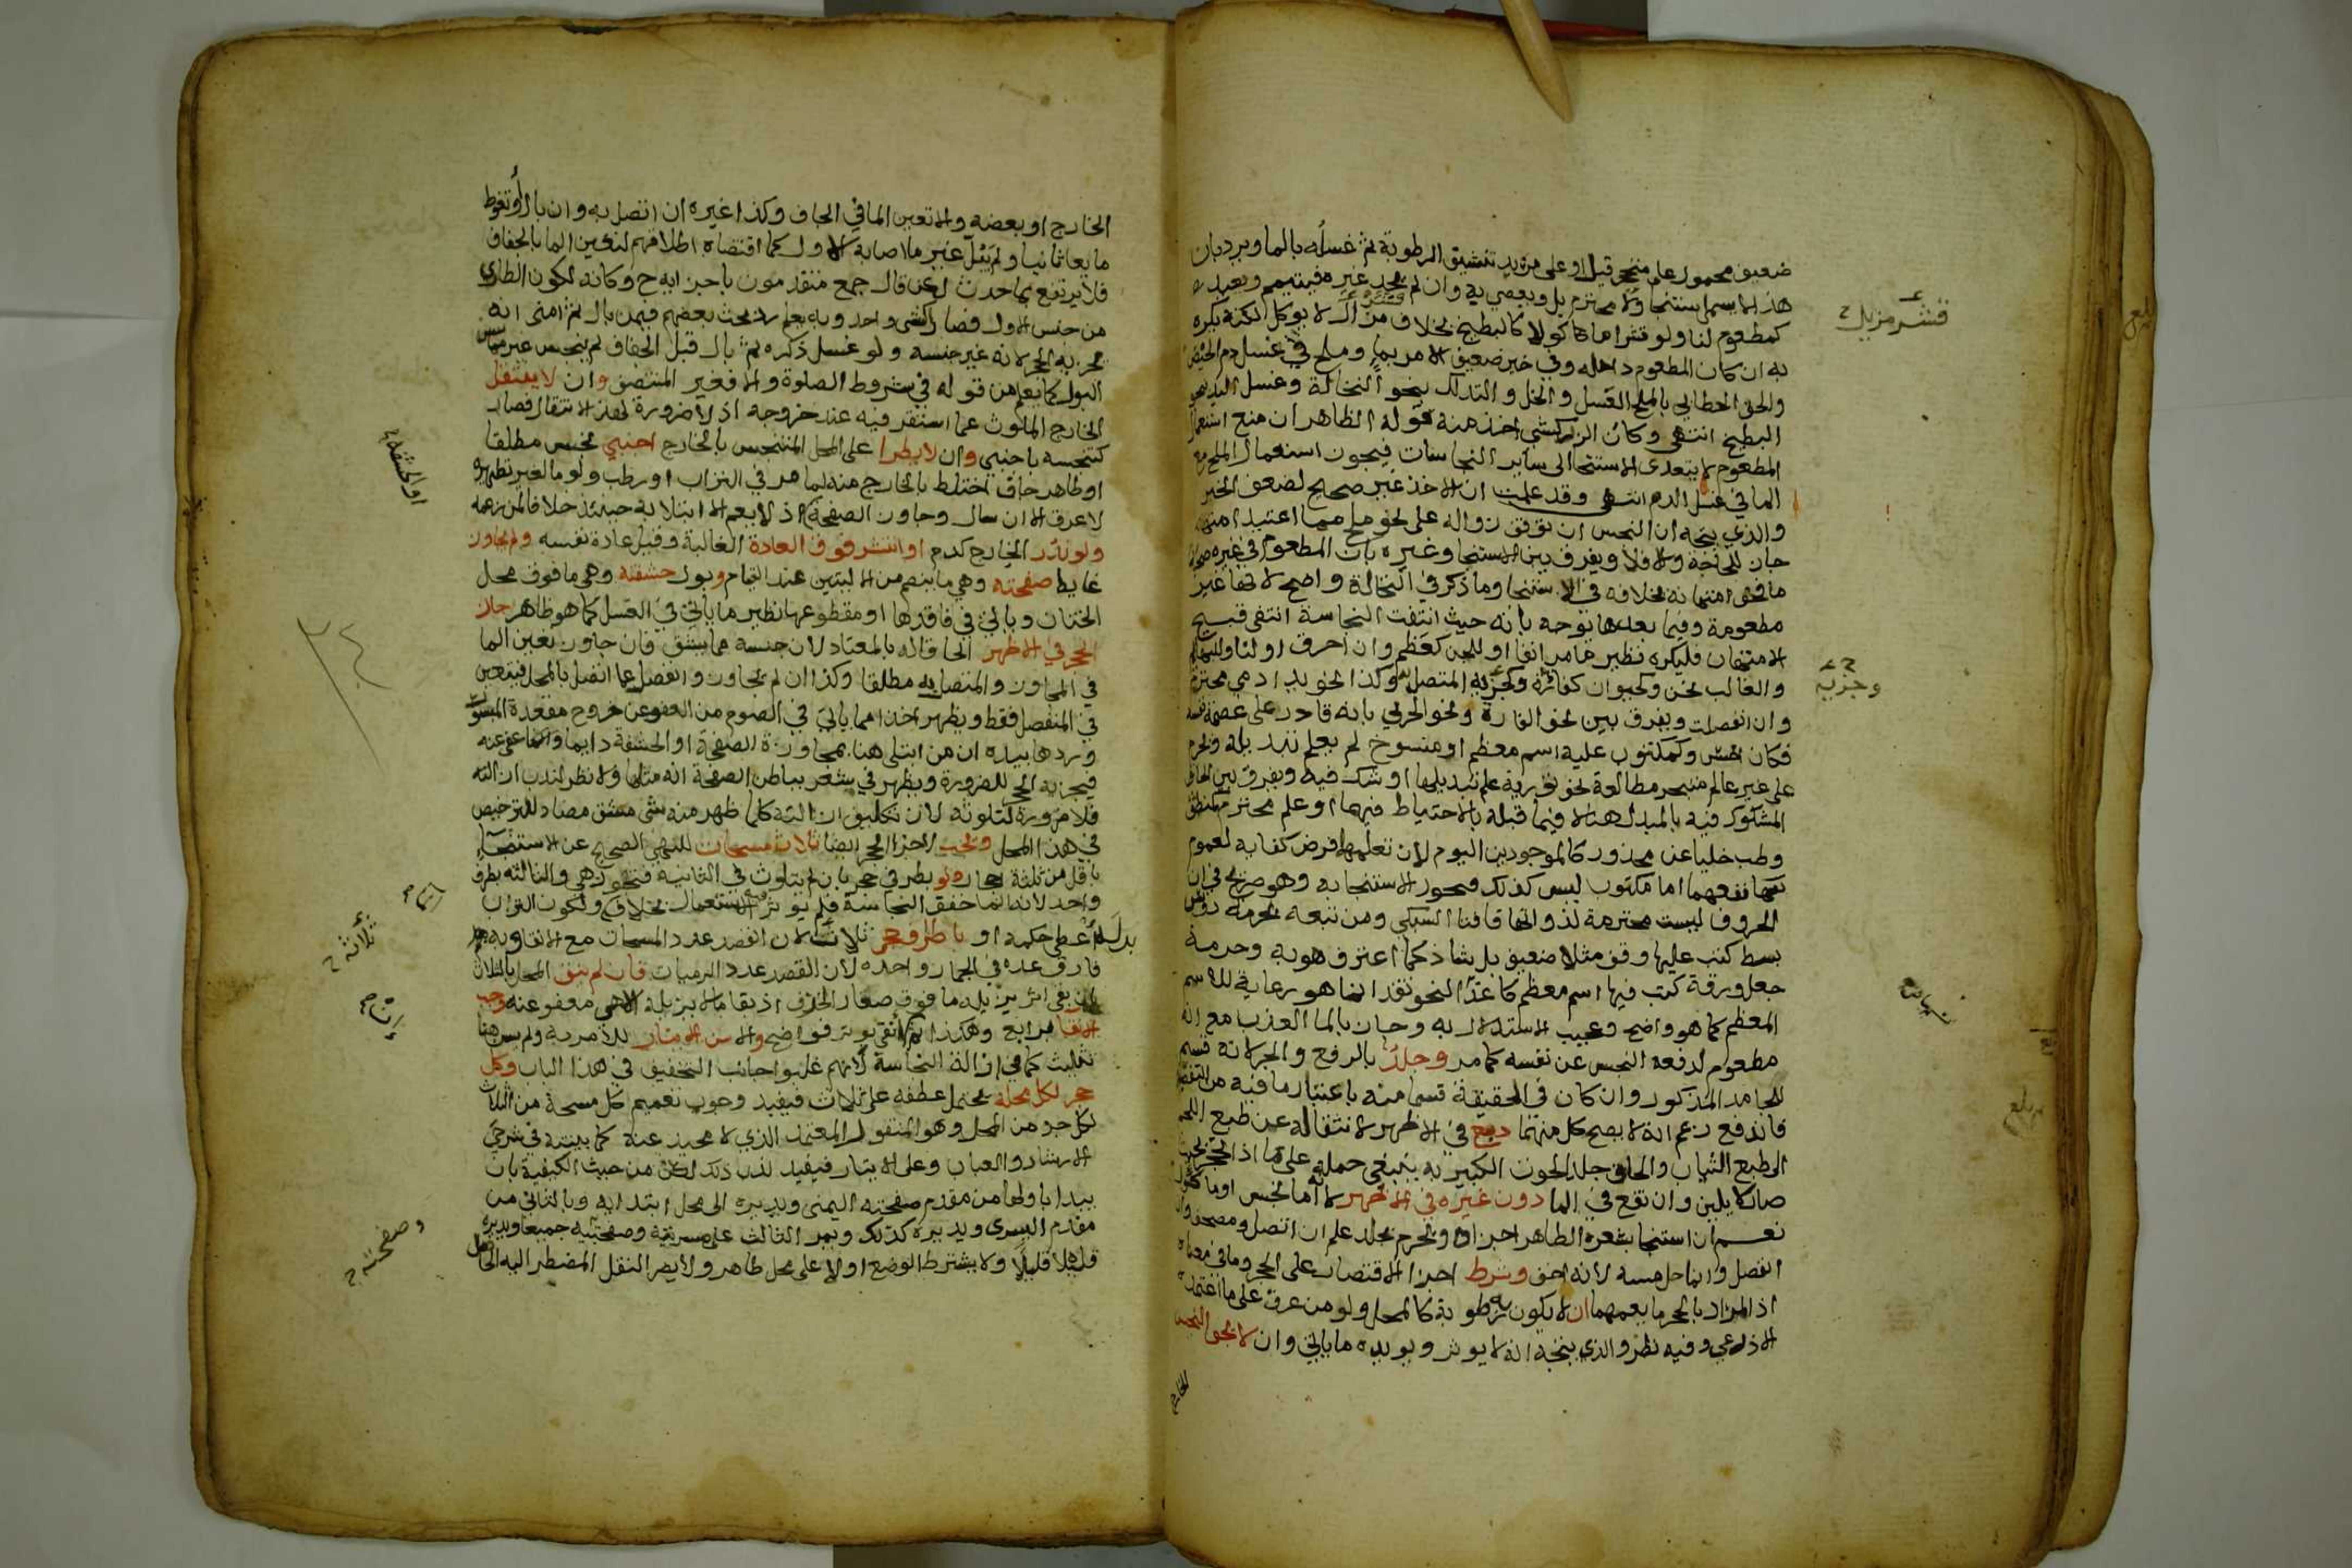 ضعيف محمول على متنجر قبل او على مريد تنشيق الرطوبة ثم غسله بالما ويرد بان
هذا لا يسمى استنجا ولا محترم بل ويعصي به وان لم يجد غيره فيتيمم ويعيد
كمطعوم لنا ولو قشرا ماكولا كالبطيخ بخلاف قشر مزيل لا يوكل لكنه يكره
به ان كان المطعوم داخله وفي خبر ضعيف الامر بما وملح في غسل دم الحيض
والحق الخطابي بالملح العسل والخل والتدلك بنحو النخالة وغسل اليد بنحو
البطيخ انتهى وكان الزركشي اخذ منه قوله الظاهر ان منع استعمال
المطعوم لا يتعدى الاستنجا الى ساير النجاسات فيجوز استعمال الملح مع
الما في غسل الدم انتهى وقد علمت ان الاخذ غير صحيح لضعف الخبر
والذي يتجه ان النجس ان توقف زواله على نحو ملح مما اعتيد امتهانه
جاز للحاجة والا فلا ويفرق بين الاستنجا وغيره بان المطعوم في غيره
ما فحش امتهانه بخلافه في الاستنجا وما ذكر في النخالة واضح لانها غير
مطعومة وفيما بعدها توجه بانه حيث انتفت النجاسة انتفى قبح
الامتهان فليكره نظير ما مر انفا او للجن كعظم وان احرق او لنا وللبهائم
والغالب نحن وكحيوان كفارة وكجزيه المتصل وكذا نحو يد ادمي محترم
وان انفصلت ويفرق بين نحو الفارة ونحو الحربي بانه قادر على عصمة نفسه
فكان اخس وكمكتوب عليه اسم معظم او منسوخ لم يعلم تبديله ويحرم
على غير عالم متبحر مطالعة نحو توراة علم تبديلها او شك فيه ويفرق بين الحاق
المشكوك فيه بالمبدل هنا لا فيما قبله بالاحتياط فيهما او علم محترم كمنطق
وطب خليا عن محذور كالموجودين اليوم لان تعلمهما فرض كفاية لعموم
نفعهما اما مكتوب ليس كذلك فيجوز الاستنجا به وهو صريح في ان
الحروف ليست محترمة لذواتها فافتا السبكي ومن تبعه بحرمة دوس
بسط كتب عليها وقف مثلا ضعيف بل شاذ كما اعترف هو به وحرمة
جعل ورقة كتب فيها اسم معظم كاغدا لنحو نقد انما هو رعاية للاسم
المعظم كما هو واضح وعجيب الاستدلال به وجاز بالما العذب مع انه
مطعوم لدفعه النجس عن نفسه كما مر وجلد بالرفع والجر كانه قسيم
للجامد المذكور وان كان في الحقيقة قسما منه باعتبار ما فيه من التفصيل
فاندفع زعم انه لا يصح كل منهما دبغ في الاظهر لانتقاله عن طبع اللحم
الى طبع الثياب والحاق جلد الحوت الكبير به ينبغي حمله على ما اذا تحجر بحيث
صار لا يلين وان نقع في الما دون غيره في الاظهر لانه اما نجس او ماكول
نعم ان استنجا بشعره الطاهر اجزاه ويحرم بجلد علم ان اتصل ومصحف وان
انفصل وانما حل مسه لانه اخف وشرط اجزا الاقتصار على الحجر وما في معناه
اذ المراد بالحجر ما يعمهما ان لا يكون به رطوبة كالمحل ولو من عرق على ما اعتمده
الاذرعي وفيه نظر والذي يتجه انه لا يوثر ويويده ما ياتي وان لا يجف النجس
الخارج
قشر مزيل
وجزيه
بلغ
الخارج او بعضه والا تعين الما في الجاف وكذا غيره ان اتصل به وان بال او تغوط
مايعا ثانيا ولم يبل غير ما اصابه الاول كما اقتضاه اطلاقهم لتعين الما بالجفاف
فلا يرتفع بما حدث لكن قال جمع متقدمون باجزايه ح وكانه لكون الطاري
من جنس الاول فصارا كشي واحد وبه يعلم رد بحث بعضهم فيمن بال ثم امنى انه
يجزيه الحجر لانه غير جنسه ولو غسل ذكره ثم بال قبل الجفاف لم ينجس غير مماس
البول كما يعلم من قوله في شروط الصلوة والا فغير المنتصف وان لا ينتقل
الخارج الملوث عما استقر فيه عند خروجه اذ لا ضرورة لهذا الانتقال فصار
كتنجسه باجنبي وان لا يطرا على المحل المتنجس بالخارج اجنبي نجس مطلقا
او طاهر جاف اختلط بالخارج منه لما مر في التراب او رطب ولو ما لغير تطهيره
لا عرق الا ان سال وجاوز الصفحة اذ لا يعم الابتلا به حينئذ خلافا لمن زعمه
ولو ندر الخارج كدم او انتشر فوق العادة الغالبة وقيل عادة نفسه ولم يجاوز
غايط صفحته وهي ما ينضم من الاليتين عند القيام وبول حشفته وهي ما فوق محل
الختان وياتي في فاقدها او مقطوعها نظير ما ياتي في الغسل كما هو ظاهر جاز
الحجر في الاظهر الحاقا له بالمعتاد لان جنسه مما يشق فان جاوز تعين الما
في المجاوز والمتصل به مطلقا وكذا ان لم يجاوز وانفصل عما اتصل بالمحل فيتعين
في المنفصل فقط ويظهر اخذا مما ياتي في الصوم من العفو عن خروج مقعدة المبسور
وردها بيده ان من ابتلي هنا بمجاوزة الصفحة او الحشفة دايما عفي عنه
فيجزيه الحجر للضرورة ويظهر في شعر بباطن الصفحة انه مثلها ولا نظر لندب ازالته
فلا ضرورة لتلوثه لان تكليف ازالته كلما ظهر منه شي مشق مضاد للترخيص
في هذا المحل ويجب لاجزا الحجر ايضا ثلاث مسحات للنهي الصحيح عن الاستنجاء
باقل من ثلثة احجار ولو بطرفي حجر بان لم يتلوث في الثانية فتجوز هي والثالثة بطرف
واحد لانه انما خفف النجاسة فلم يوثر فيه الاستعمال بخلاف ولكون التراب
بدله اعطي حكمه او باطراف حجر ثلاثة لان القصد عدد المسحات مع الانقا وبه
فارق عده في الجمار واحدة لان القصد عدد الرميات فان لم ينق المحل بالثلاث
بان بقي اثر يزيله ما فوق صغار الخزف اذ بقا ما لا يزيله الا هي معفو عنه وجب
الانقا برابع وهكذا ثم ان انقى بوتر فواضح والا سن الايتار للامر به ولم يسن هنا
تثليث كما في ازالة النجاسة لانهم غلبوا جانب التخفيف في هذا الباب وكل
حجر لكل محله يحتمل عطفه على ثلاث فيفيد وجوب تعميم كل مسحة من الثلاث
لكل جزء من المحل وهو المنقول المعتمد الذي لا محيد عنه كما بينته في شرحي
الارشاد والعباب وعلى الايتار فيفيد ندب ذلك لكن من حيث الكيفية بان
يبدا باولها من مقدم صفحته اليمنى ويديره الى محل ابتدايه وبالثاني من
مقدم اليسرى ويديره كذلك ويمر الثالث على مسربته وصفحتيه جميعا ويديره
قليلا قليلا ولا يشترط الوضع اولا على محل طاهر ولا يضر النقل المضطر اليه الحاصل
او الحشفة
ثلاثة
وصفحتيه